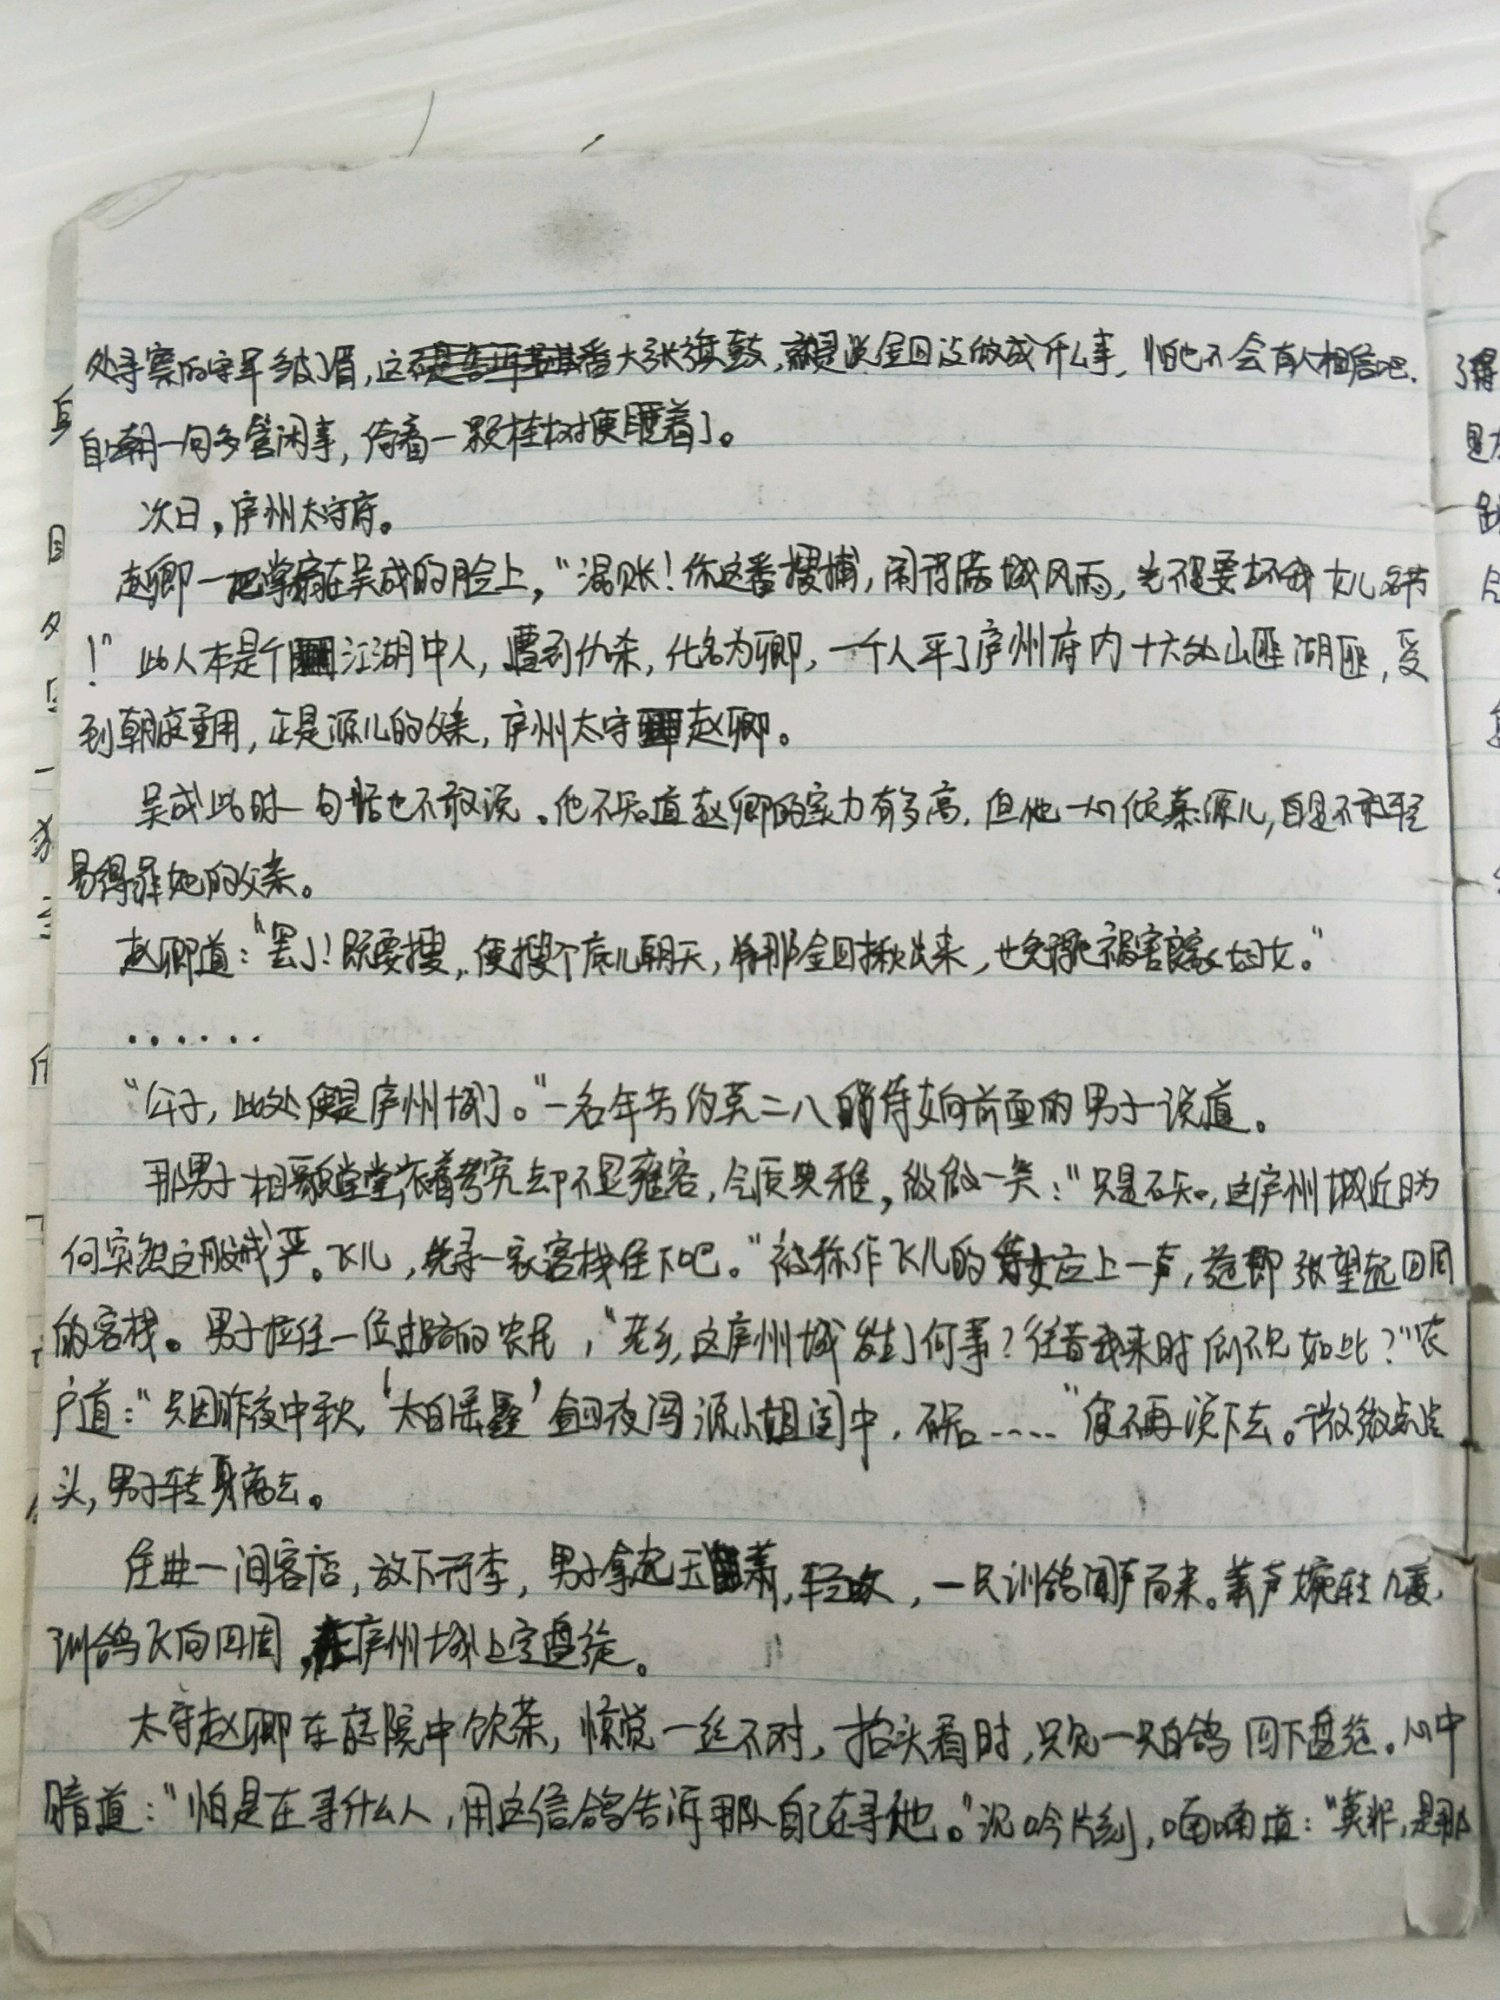 处寻索的守军皱眉,这番大张旗鼓,就是说金回没做成什么事,怕也不会有人相信吧.
自嘲一句多管闲事,倚着一颗桂树便睡着了。
次日,庐州太守府。
赵卿一把掌扇在吴成的脸上,“混账!你这番搜捕,闹得满城风雨,岂不是要坏我女儿名节
!”此人本是个江湖中人,遭到仇杀,化名为卿,一个人平了庐州府内十六处山匪湖匪,受
到朝庭重用,正是源儿的父亲,庐州太守赵卿。
吴成此时一句话也不敢说。他不知道赵卿的实力有多高,但他一心倾慕源儿,自是不敢轻
易得罪她的父亲。
赵卿道:“罢了!既要搜,便搜个底儿朝天,将那金回揪出来,也免得他祸害良家妇女。”
......
“公子,此处便是庐州城了。”一名年芳约莫二八的侍女向前面的男子说道。
那男子相貌堂堂,衣着考究却不显雍容,气质典雅,微微一笑:“只是不知,这庐州城近日为
何突然这般戒严。飞儿,先寻一家客栈住下吧。”被称作飞儿的侍女应上一声,旋即张望起四周
的客栈。男子拉住一位过路的农民,“老乡,这庐州城发生了何事?往昔我来时倒不见如此?”农
户道:“只因昨夜中秋,‘太白’金回夜闯源小姐闺中,不知....”便不再说下去。微微点点
头,男子转身离去。
住进一间客店,放下行李,男子拿起玉萧,轻吹,一只训鸽闻声而来。萧声婉转几度,
训鸽飞向四周,在庐州城上空盘旋。
太守赵卿在庭院中饮茶,惊觉一丝不对,抬头看时,只见一只白鸽回下盘旋。心中
暗道:“怕是在寻什么人,用这信鸽告诉那人自己在寻他。”沉吟片刻,喃喃道:“莫非,是那